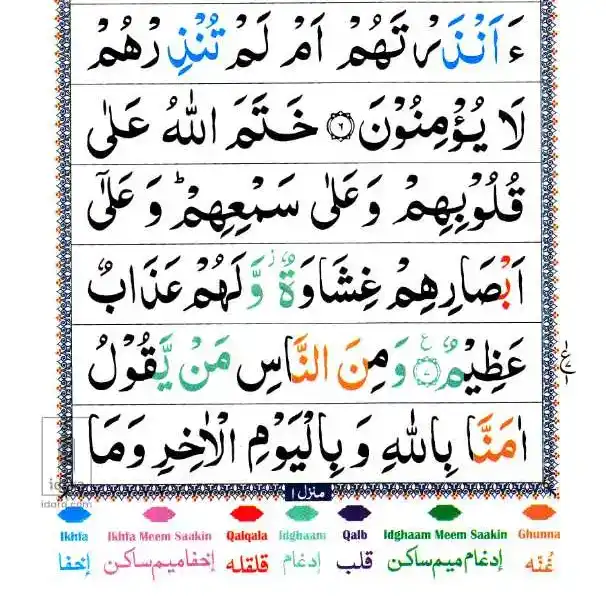 ءَاَنْذَرْتَهُمْ اَمْ لَمْ تُنْذِرْهُمْ
لَا يُؤْمِنُوْنَ ۶ خَتَمَ اللهُ عَلٰى
قُلُوْبِهِمْ وَعَلٰى سَمْعِهِمْ ؕ وَعَلٰٓى
اَبْصَارِهِمْ غِشَاوَةٌ ز وَّلَهُمْ عَذَابٌ
عَظِيْمٌ ۷ ع وَمِنَ النَّاسِ مَنْ يَّقُوْلُ
اٰمَنَّا بِاللهِ وَبِالْيَوْمِ الْاٰخِرِ وَمَا
منزل ۱
idara.com
Ikhfa Ikhfa Meem Saakin Qalqala Idghaam Qalb Idghaam Meem Saakin Ghunna
إخفا إخفا میم ساکن قلقله إدغام قلب إدغام میم ساکن غُنّه